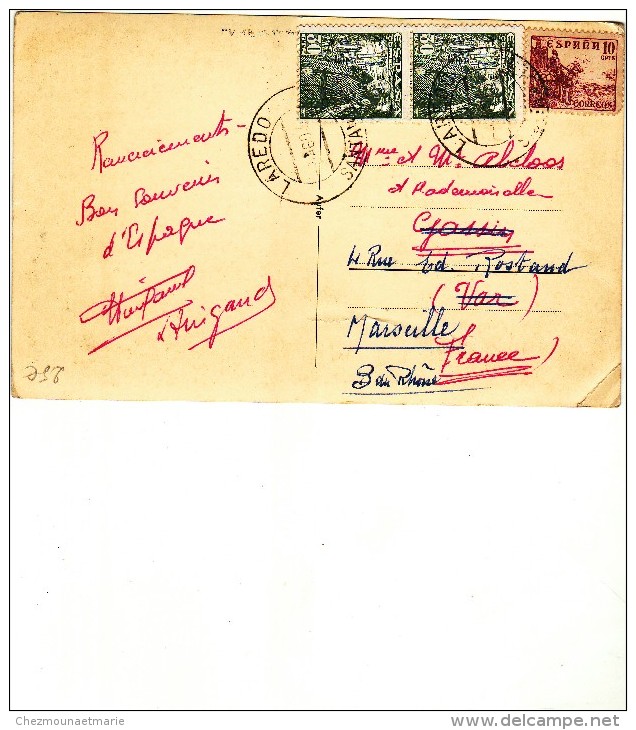 50
50
ESPAÑA 10
CTS
CORREOS
LAREDO
Remerciements -
Bon Souvenir
d'Espagne
Autor
Mme et Mr Abeloos
et Mademoiselle
Gassin
4 Rue Ed. Rostand
(Var)
Marseille
(France)
B du Rhône
Chezmounaetmarie
www.delcampe.net